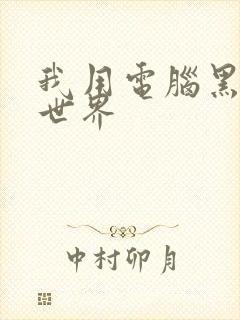 我用電腦黑
世界
中村卯月